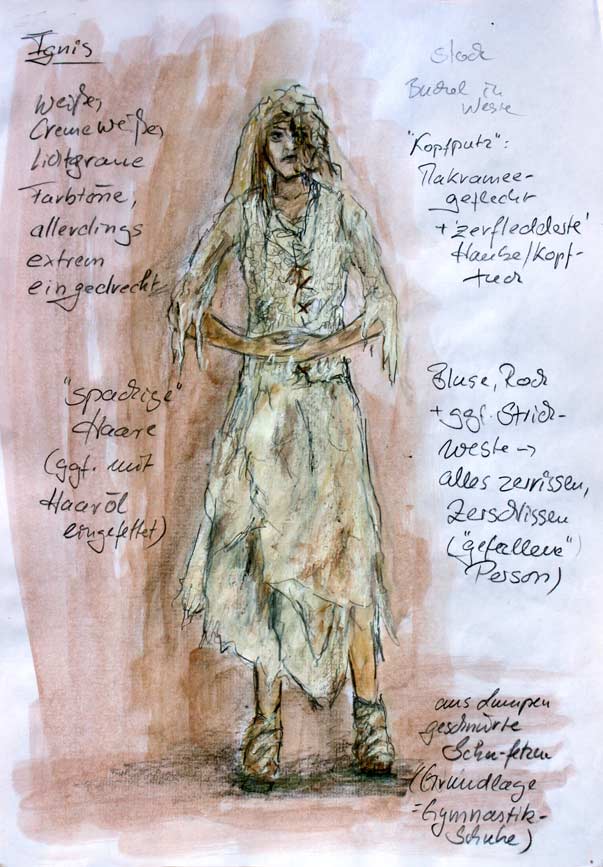 Ignis
Weißer,
Cremeweißer,
lichtgraue
Farbtöne,
allerdings
extrem
eingedreckt
"spackige"
Haare
(ggf. mit
Haaröl
eingefettet)
Stock
Buckel in
Weste
"Kopfputz":
Makramee-
geflecht
+ 'zerfledderte'
Haube/Kopf-
tuch
Bluse, Rock
+ ggf. Strick-
weste ->
alles zerrissen,
zerschlissen
("gefallene"
Person)
aus Lumpen
geschnürte
Schuhfetzen
(Grundlage
= Gymnastik-
schuhe)